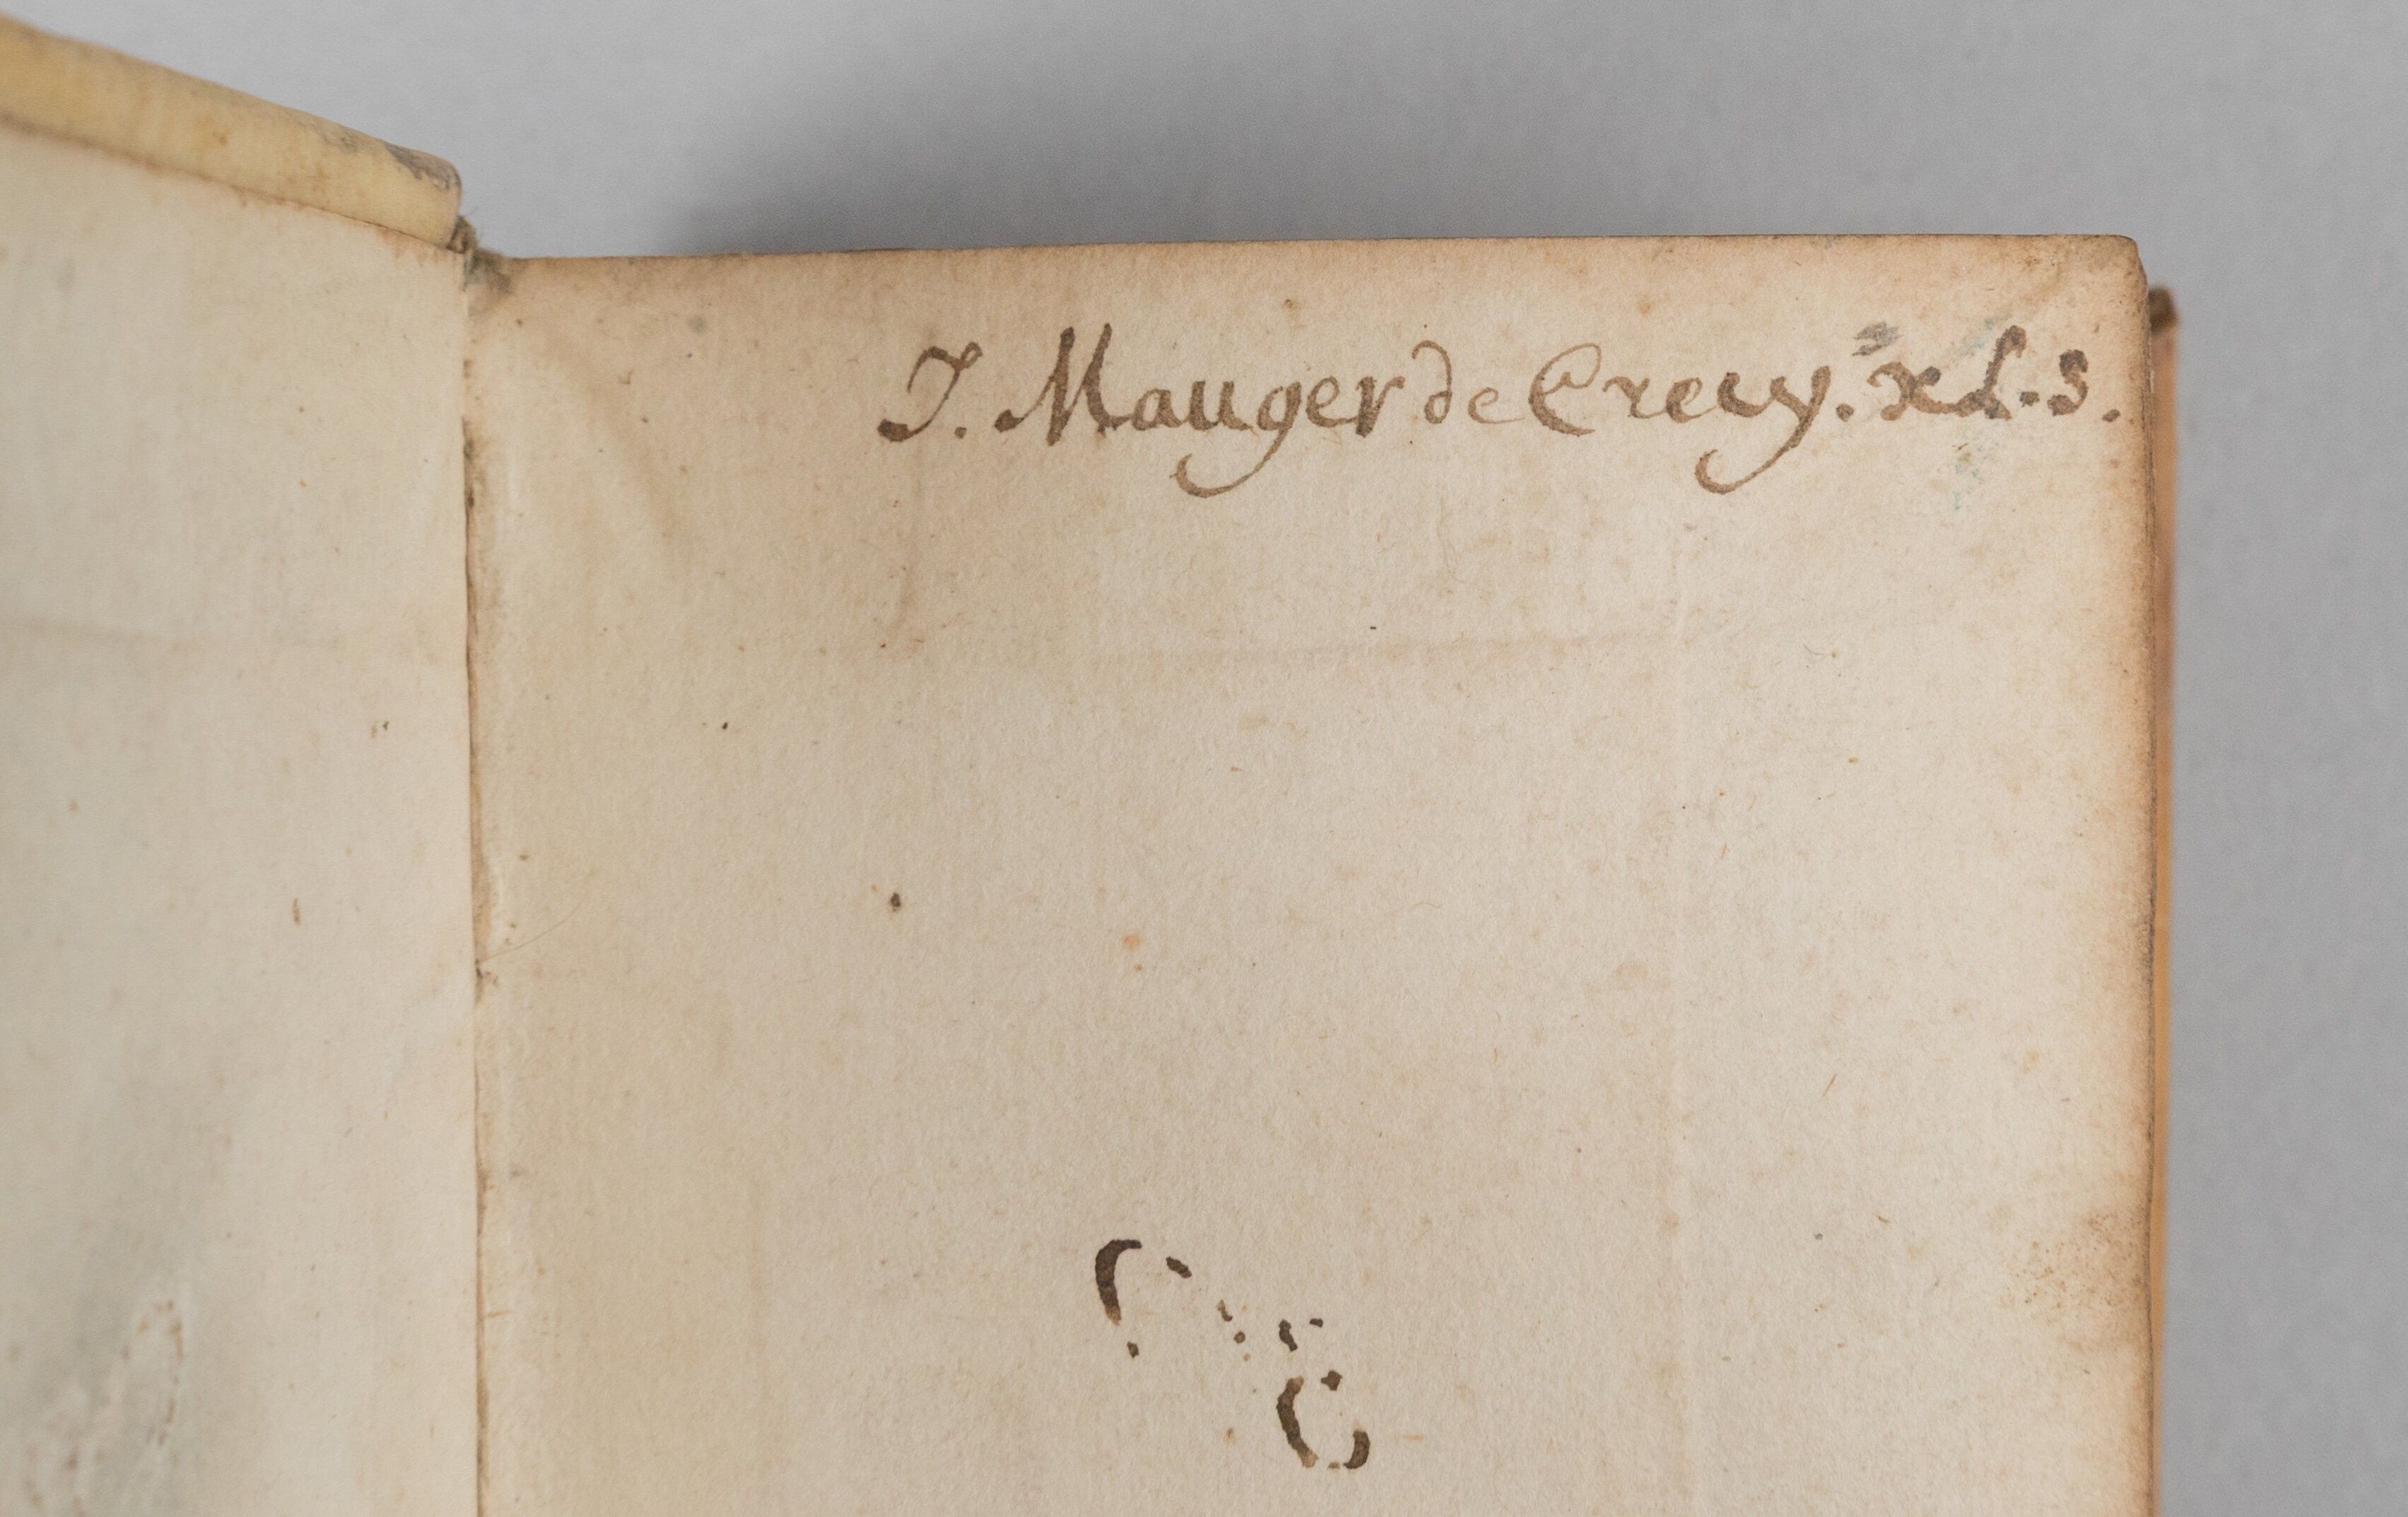 J. Mauger de Crecy. xL. s.